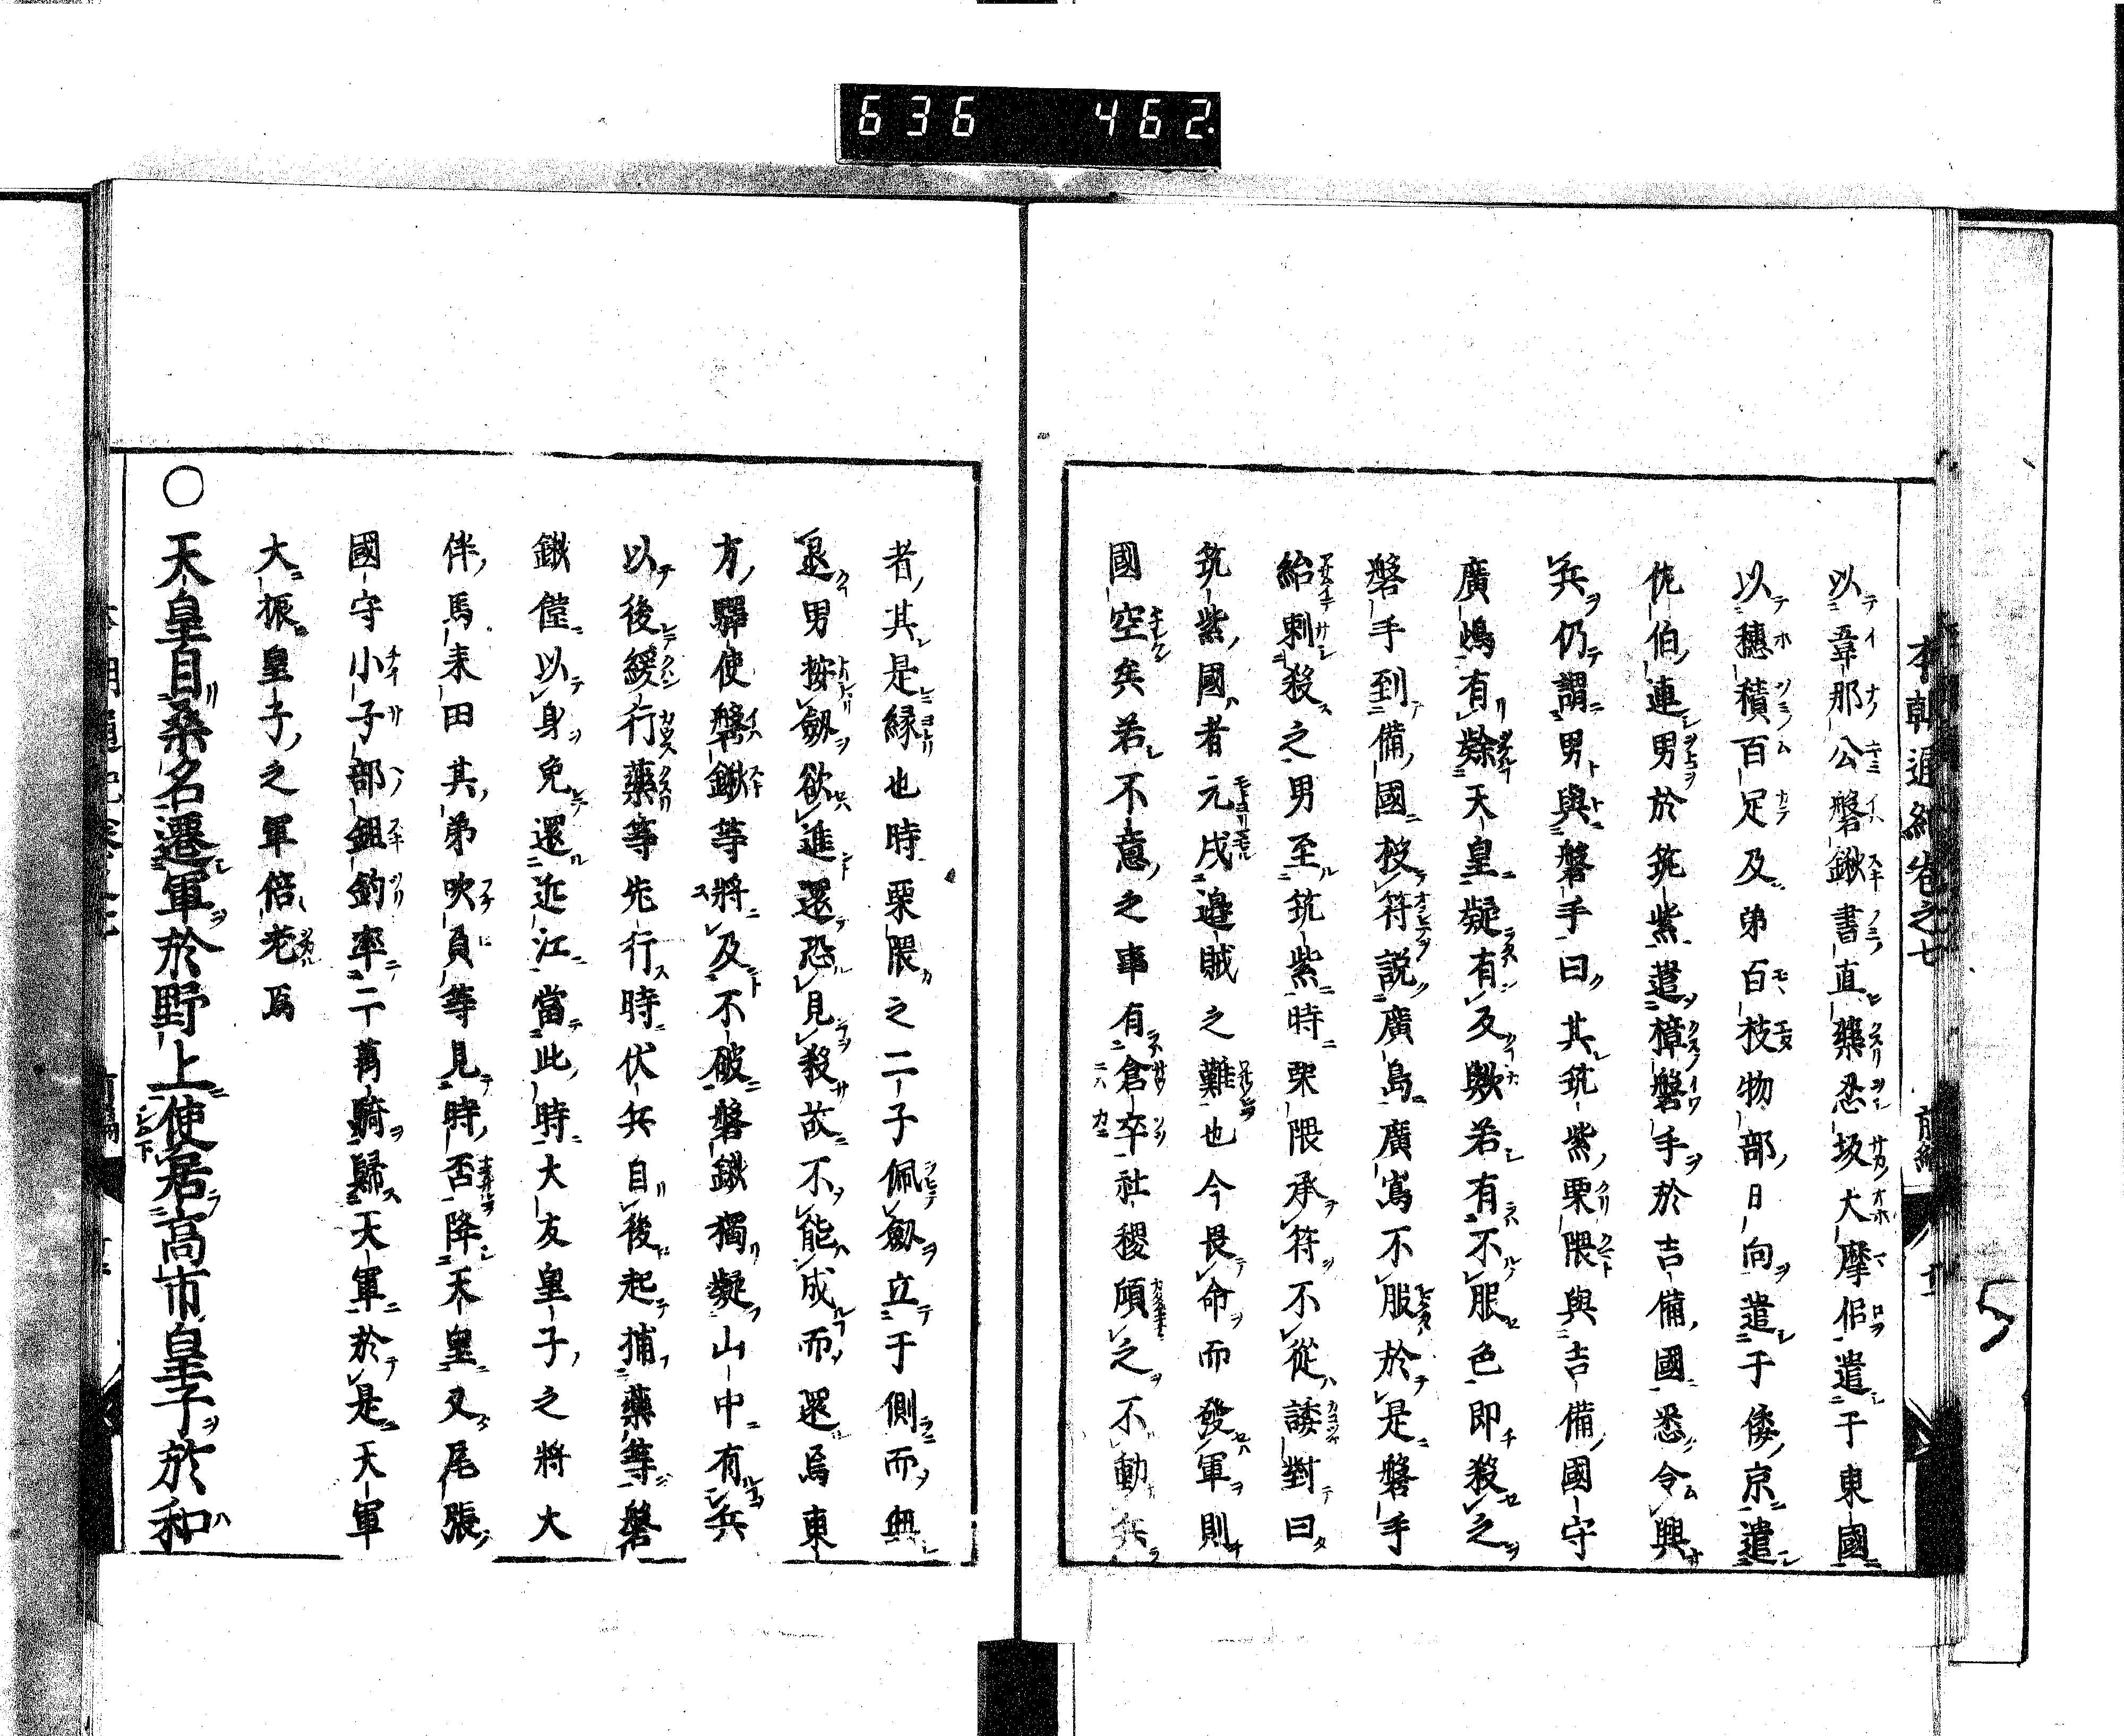 636 462
本朝通紀卷之七 前編 十二
以韋那公磐鍬書直藥忍坂大摩侶遣于東國
以穗積百足及弟百枝物部日向遣于倭京遣
佐伯連男於筑紫遣樟磐手於吉備國悉令興
兵仍謂男與磐手曰其筑紫栗隈與吉備國守
廣嶋有隸天皇疑有反歟若有不服色即殺之
磐手到備國授符説廣島廣嶌不服於是磐手
紿刺殺之男至筑紫時栗隈承符不從諉對曰
筑紫國者元戌邊賊之難也今畏命而發軍則
國空矣若不意之事有倉卒社稷傾之不動兵
者其是縁也時栗隈之二子佩劔立于側而無
退男按劔欲進還恐見殺故不能成而還焉東
方驛使磐鍬等將及不破磐鍬獨疑山中有兵
以後緩行藥等先行時伏兵自後起捕藥等磐
鍬僅以身免還近江當此時大友皇子之將大
伴馬来田其弟吹負等見時否降天皇又尾張
國守小子部鉏釣率二萬騎歸天軍於是天軍
大振皇子之軍倍老焉
○天皇自桑名遷軍於野上使居高市皇子於和
5